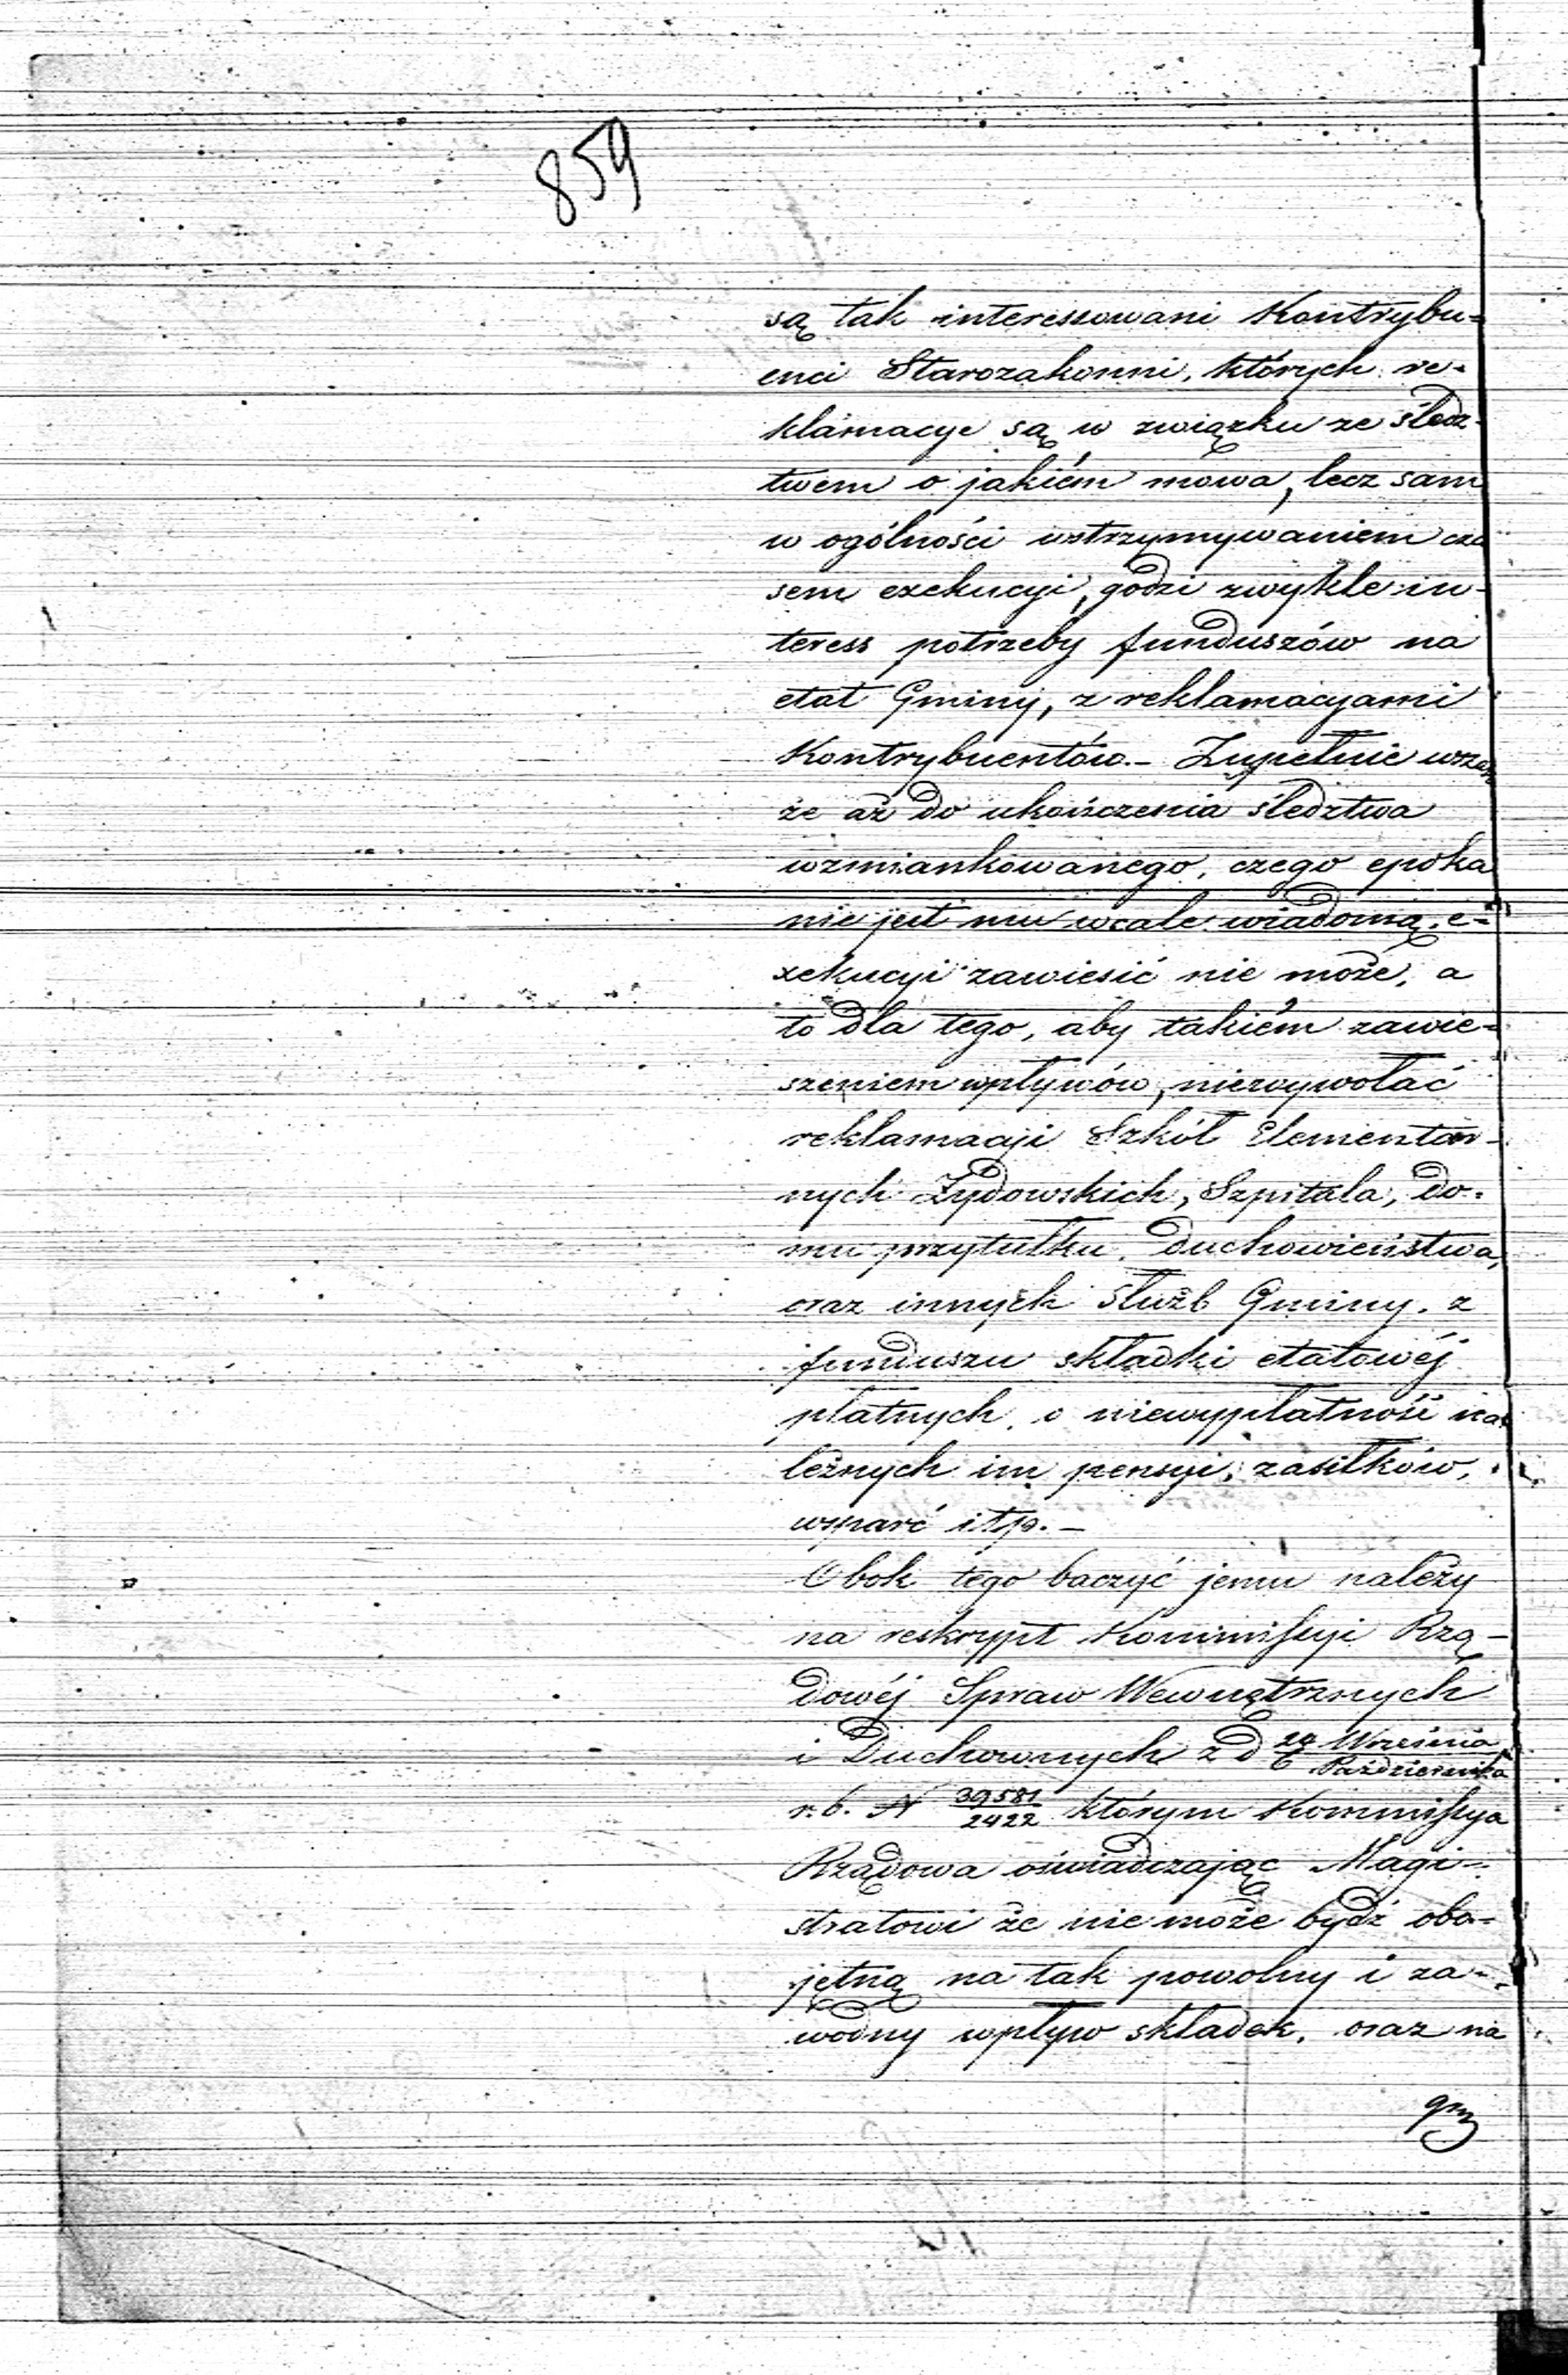 859
są tak interessowani Kontrybu=
enci Starozakonni, których re-
klamacye są w związku ze śledz-
twem o jakiém mowa, lecz sam
w ogólności wstrzymywaniem cza
sem exekucyi, godzi zwykle in-
teress potrzeby funduszów na
etat Gminy, z reklamacyami
Kontrybuentów.- Zupełnie
że aż do ukończenia śledztwa
wzmiankowanego, czego epoka
nie jest mu wcale wiadomą, e=
xekucyi zawiesić nie może, a
to dla tego, aby takiém zawie=
szeniem wpływów, niewywołać
reklamacyi Szkół Elementar-
nych Żydowskich, Szpitala, do-
mu przytułku, duchowieństwa,
oraz innych służb Gminy, z
funduszu składki etatowéj
płatnych, o niewypłatność na
leżnych im pensyi, zasiłków,
wsparć itp.-
Obok tego baczyć jemu należy
na reskrypt Kommissyi Rzą-
dowéj Spraw Wewnętrznych
i Duchownych z d 24 Września
6 Października
r.b. N 39581/2422 którym Kommissya
Rządowa oświadczając Magi-
stratowi że nie może bydź obo-
jętną na tak powolny i za-
wodny wpływ składek, oraz na